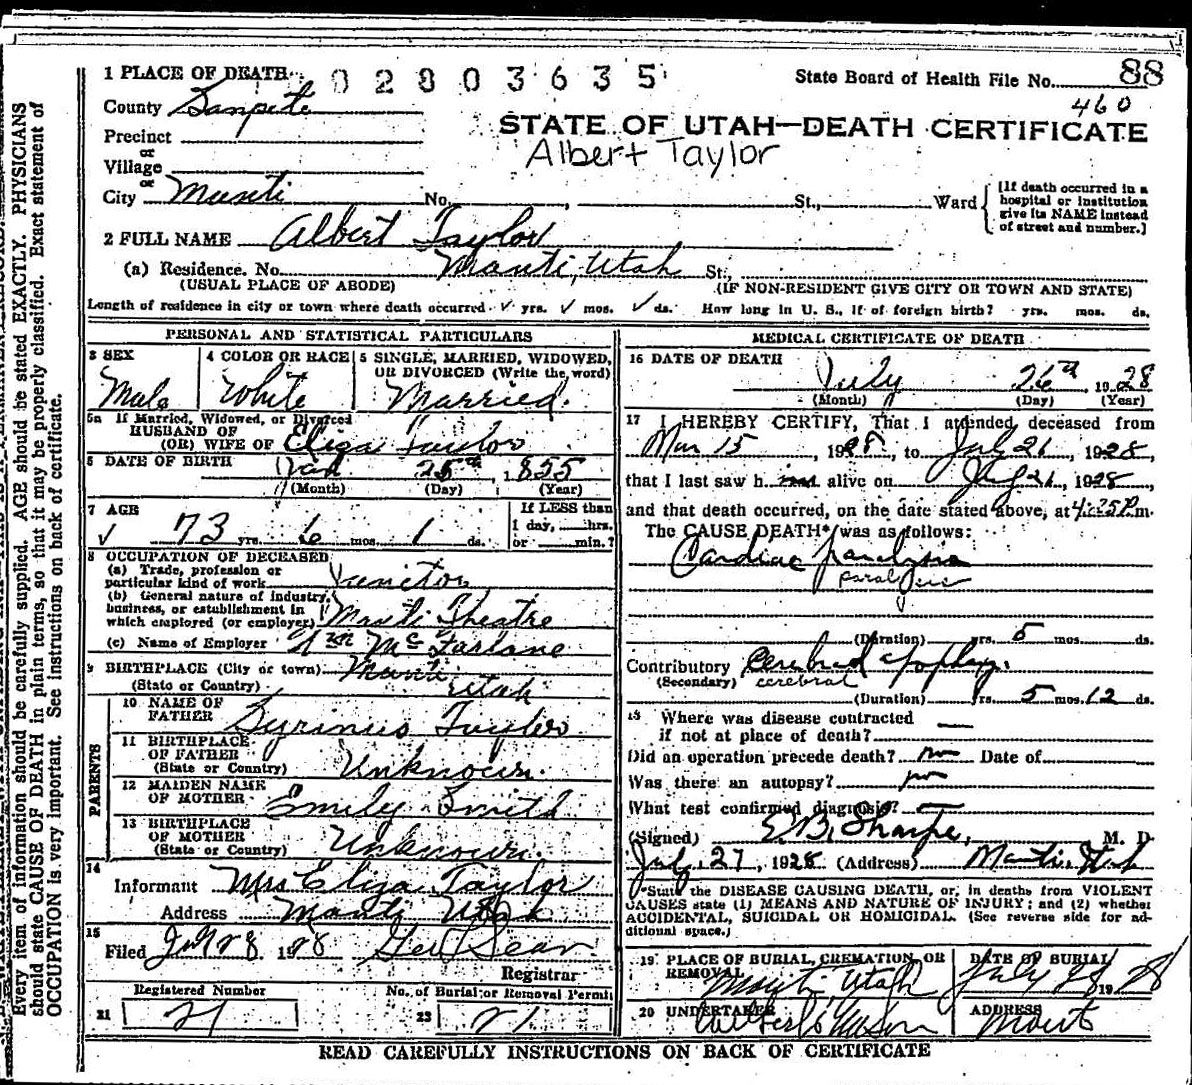 1 PLACE OF DEATH 02803635 State Board of Health File No. 88
County Sanpete 460
STATE OF UTAH—DEATH CERTIFICATE
Precinct
Albert Taylor
or
Village
or
City Manti No. , St., Ward
[If death occurred in a
hospital or institution
give its NAME instead
of street and number.]
2 FULL NAME Albert Taylor
(a) Residence. No. Manti, Utah St.,
(USUAL PLACE OF ABODE) (IF NON-RESIDENT GIVE CITY OR TOWN AND STATE)
Length of residence in city or town where death occurred ✓ yrs. ✓ mos. ✓ ds. How long in U. S., if of foreign birth? yrs. mos. ds.
PERSONAL AND STATISTICAL PARTICULARS
3 SEX 4 COLOR OR RACE 5 SINGLE, MARRIED, WIDOWED,
OR DIVORCED (Write the word)
Male White Married.
5a If Married, Widowed, or Divorced
HUSBAND OF
(OR) WIFE OF Eliza Taylor
6 DATE OF BIRTH Jan 25th, 1855
(Month) (Day) (Year)
7 AGE If LESS than
✓ 73 yrs. 6 mos. 1 ds. 1 day, hrs.
or min.?
8 OCCUPATION OF DECEASED
(a) Trade, profession or
particular kind of work Janitor
(b) General nature of industry,
business, or establishment in
which employed (or employer) Manti Theatre
(c) Name of Employer Wm McFarlane
9 BIRTHPLACE (City or town) Manti
(State or Country) Utah
PARENTS
10 NAME OF
FATHER Syrinus Taylor
11 BIRTHPLACE
OF FATHER
(State or Country) Unknown.
12 MAIDEN NAME
OF MOTHER Emily Smith
13 BIRTHPLACE
OF MOTHER
(State or Country) Unknown.
14
Informant Mrs Eliza Taylor
Address Manti Utah
15
Filed July 28 1928
Registrar
Registered Number No. of Burial or Removal Permit
21 21 22 21
MEDICAL CERTIFICATE OF DEATH
16 DATE OF DEATH
July 26th, 1928
(Month) (Day) (Year)
17 I HEREBY CERTIFY, That I attended deceased from
Mar 15, 1928, to July 26, 1928,
that I last saw him alive on July 26, 1928,
and that death occurred, on the date stated above, at 4:25 P.m.
The CAUSE DEATH* was as follows:
Cardiac Paralysis
paralysis
(Duration) yrs. 5 mos. ds.
Contributory Cerebral Apoplexy.
(Secondary) cerebral
(Duration) yrs. 5 mos. 12 ds.
18 Where was disease contracted
if not at place of death? —
Did an operation precede death? no Date of
Was there an autopsy? no
What test confirmed diagnosis? —
(Signed) E.B. Sharpe, M. D.
July 27, 1928 (Address) Manti, Utah
*State the DISEASE CAUSING DEATH, or, in deaths from VIOLENT
CAUSES state (1) MEANS AND NATURE OF INJURY; and (2) whether
ACCIDENTAL, SUICIDAL OR HOMICIDAL. (See reverse side for ad-
ditional space.)
19 PLACE OF BURIAL, CREMATION, OR DATE OF BURIAL
REMOVAL Manti, Utah July 28 1928
20 UNDERTAKER ADDRESS
Manti
READ CAREFULLY INSTRUCTIONS ON BACK OF CERTIFICATE
Every item of information should be carefully supplied. AGE should be stated EXACTLY. PHYSICIANS
should state CAUSE OF DEATH in plain terms, so that it may be properly classified. Exact statement of
OCCUPATION is very important. See instructions on back of certificate.